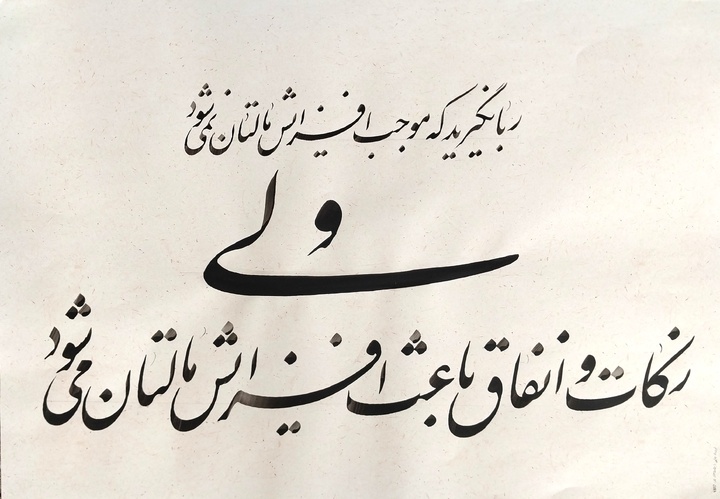 ربا نگیرید که موجب افزایش مالتان نمی‌شود
ولی
زکات و انفاق باعث افزایش مالتان می‌شود